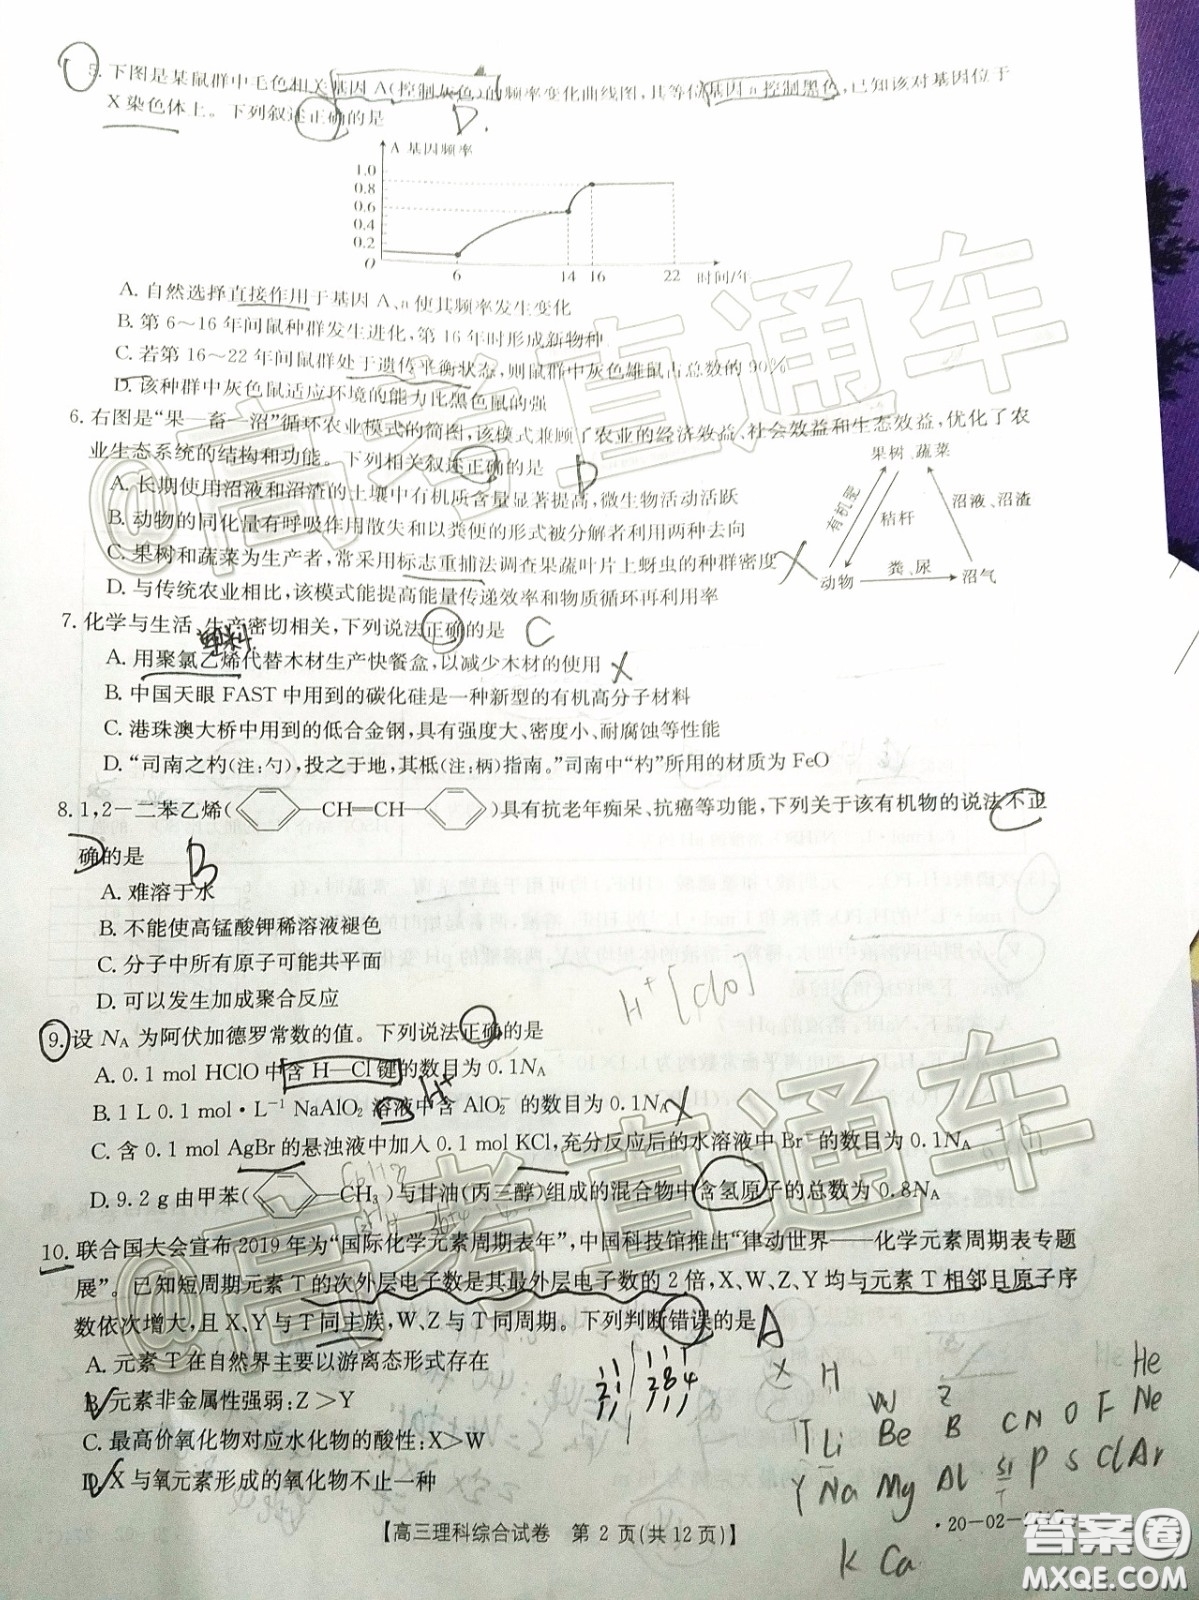 5. 下图是某鼠群中毛色相关基因A(控制灰色)的频率变化曲线图,其等位基因a控制黑色,已知该对基因位于
X染色体上。下列叙述正确的是
D.
A 基因频率
1.0
0.8
0.6
0.4
0.2
O
6 14 16 22 时间/年
A. 自然选择直接作用于基因A、a使其频率发生变化
B. 第6～16年间鼠种群发生进化,第16年时形成新物种
C. 若第16～22年间鼠群处于遗传平衡状态,则鼠群中灰色雄鼠占总数的90%
D. 该种群中灰色鼠适应环境的能力比黑色鼠的强
6. 右图是“果—畜—沼”循环农业模式的简图,该模式兼顾了农业的经济效益、社会效益和生态效益,优化了农
业生态系统的结构和功能。下列相关叙述正确的是
D
果树、蔬菜
有机质
秸秆
沼液、沼渣
动物
粪、尿
沼气
A. 长期使用沼液和沼渣的土壤中有机质含量显著提高,微生物活动活跃
B. 动物的同化量有呼吸作用散失和以粪便的形式被分解者利用两种去向
C. 果树和蔬菜为生产者,常采用标志重捕法调查果蔬叶片上蚜虫的种群密度
D. 与传统农业相比,该模式能提高能量传递效率和物质循环再利用率
7. 化学与生活、生产密切相关,下列说法正确的是 C
塑料
A. 用聚氯乙烯代替木材生产快餐盒,以减少木材的使用 X
B. 中国天眼FAST中用到的碳化硅是一种新型的有机高分子材料
C. 港珠澳大桥中用到的低合金钢,具有强度大、密度小、耐腐蚀等性能
D. “司南之杓(注:勺),投之于地,其柢(注:柄)指南。”司南中“杓”所用的材质为FeO
8. 1,2－二苯乙烯( —CH═CH— )具有抗老年痴呆、抗癌等功能,下列关于该有机物的说法不正
确的是 B
A. 难溶于水
B. 不能使高锰酸钾稀溶液褪色
C. 分子中所有原子可能共平面
D. 可以发生加成聚合反应
H⁺ [ClO]
9. 设NA为阿伏加德罗常数的值。下列说法正确的是
A. 0.1 mol HClO中含H—Cl键的数目为0.1NA
B. 1 L 0.1 mol·L⁻¹ NaAlO₂溶液中含AlO₂⁻的数目为0.1NA X
H⁺
C. 含0.1 mol AgBr的悬浊液中加入0.1 mol KCl,充分反应后的水溶液中Br⁻的数目为0.1NA
D. 9.2 g由甲苯( —CH₃)与甘油(丙三醇)组成的混合物中含氢原子的总数为0.8NA
10. 联合国大会宣布2019年为“国际化学元素周期表年”,中国科技馆推出“律动世界——化学元素周期表专题
展”。已知短周期元素T的次外层电子数是其最外层电子数的2倍,X、W、Z、Y均与元素T相邻且原子序
数依次增大,且X、Y与T同主族,W、Z与T同周期。下列判断错误的是 A
A. 元素T在自然界主要以游离态形式存在
B. 元素非金属性强弱:Z＞Y
C. 最高价氧化物对应水化物的酸性:X＞W
D. X与氧元素形成的氧化物不止一种
2 8 4
X H He
W Z
Li Be B C N O F Ne
Y Na Mg Al Si P S Cl Ar
T
K Ca
【高三理科综合试卷 第2页(共12页)】
·20-02-
@高考直通车
@高考直通车
答案圈
MXQE.COM